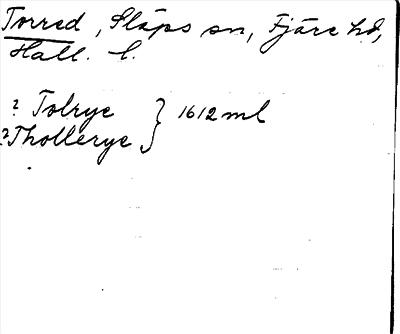 Torred, Släps sn, Fjäre hd,
Hall. l.
? Tolrye } 1612 ml
? Thollerye